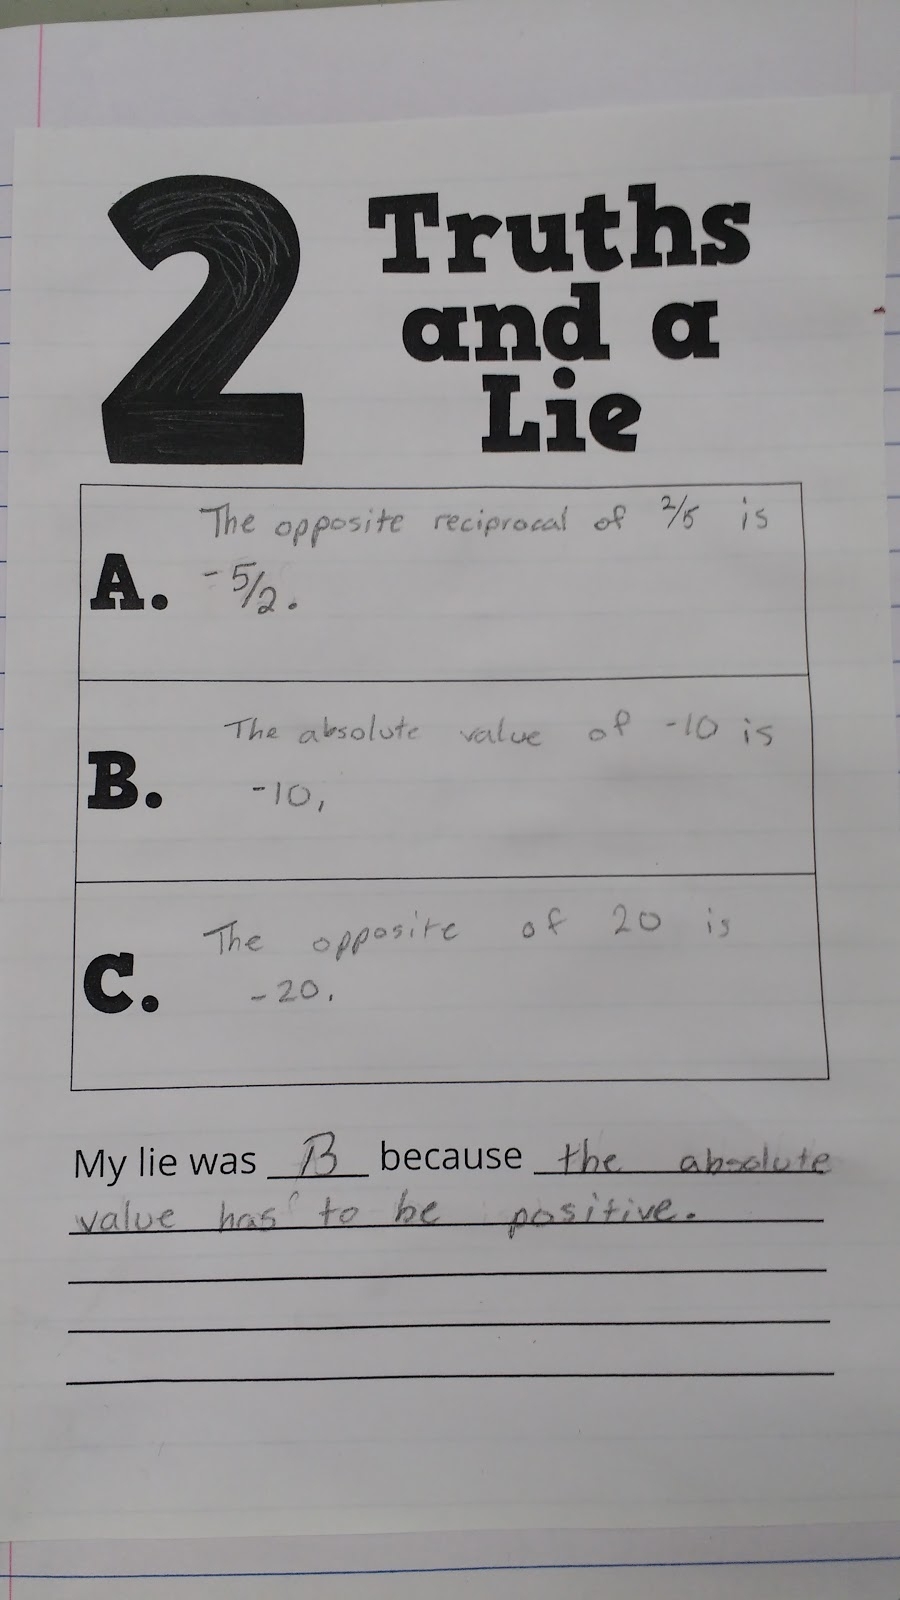 2 Truths
and a
Lie
The opposite reciprocal of 2/5 is
A. -5/2.
The absolute value of -10 is
B. -10,
The opposite of 20 is
C. -20.
My lie was B because the absolute
value has to be positive.